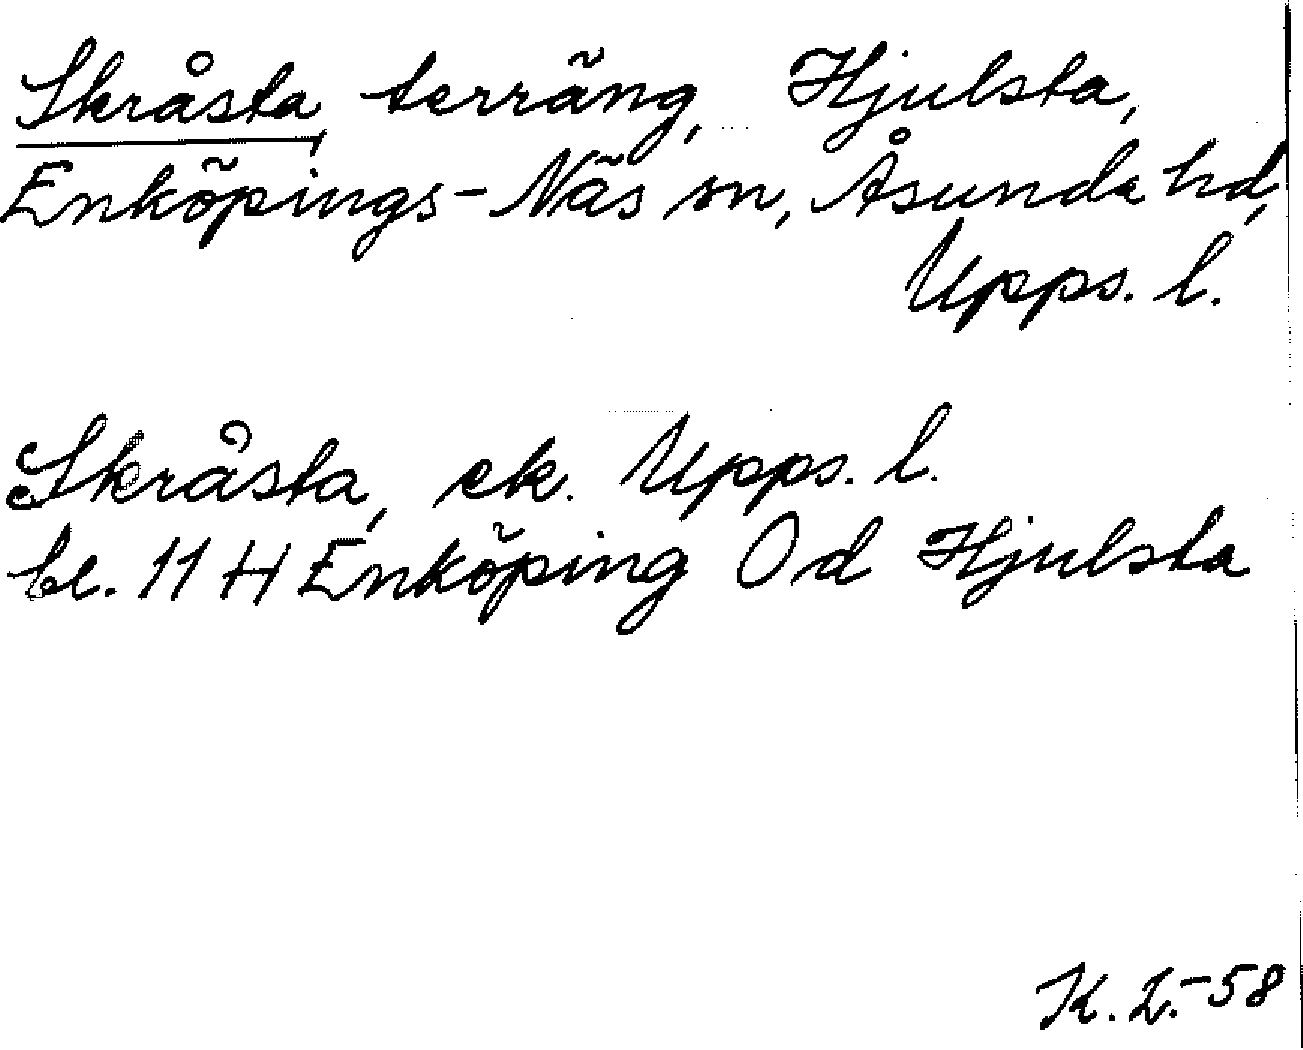 Skråsta, terräng, Hjulsta,
Enköpings-Näs sn, Åsunda hd,
Upps. l.
Skråsta, ek. Upps. l.
bl. 11 H Enköping Od Hjulsta
K. L. -58